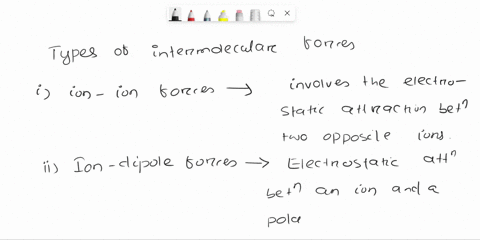 Types of intermolecular forces
i) ion-ion forces → involves the electro-
static attraction betⁿ
two opposite ions.
ii) Ion-dipole forces → Electrostatic attⁿ
betⁿ an ion and a
pola